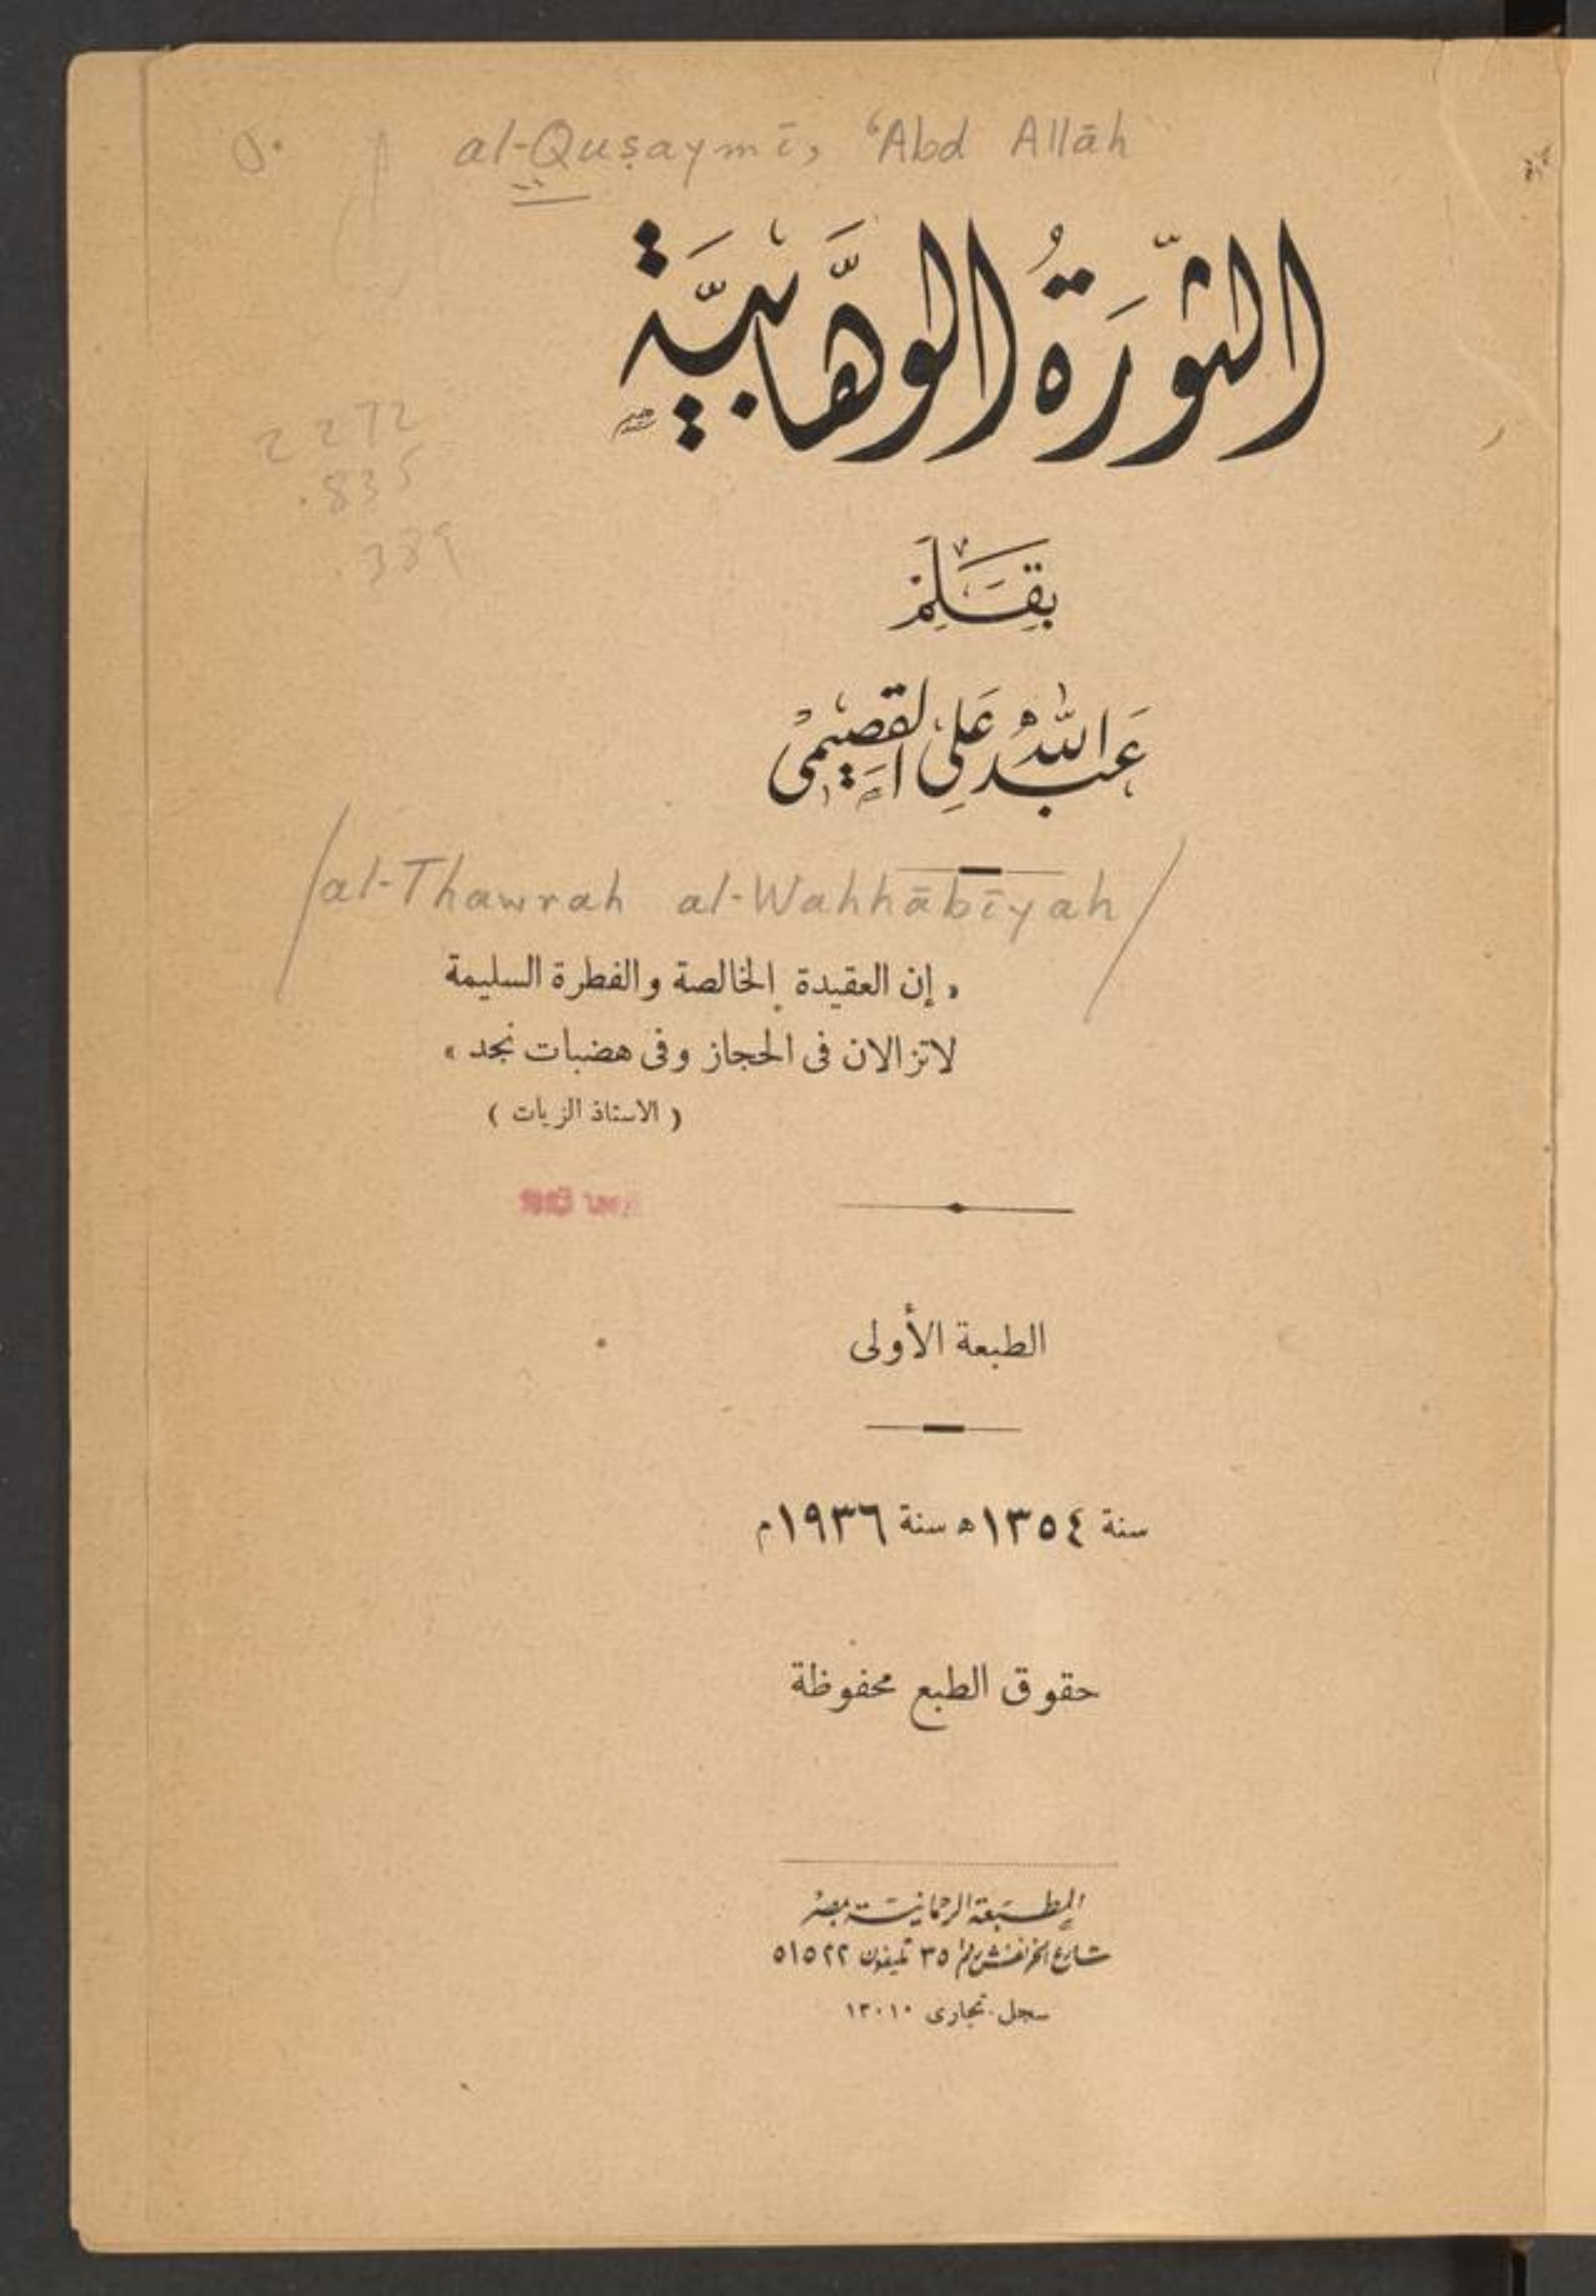 al-Quṣaymī, ʻAbd Allāh
الثَّورَةُ الوَهَّابيَّة
2272
.835
.389
بِقَلَمْ
عَبد اللهُ عَلِي القَصِيْمِى
/al-Thawrah al-Wahhābīyah/
« إن العقيدة الخالصة والفطرة السليمة
لاتزالان فى الحجاز وفى هضبات نجد »
( الاستاذ الزيات )
الطبعة الأولى
سنة ١٣٥٤ ه سنة ١٩٣٦ م
حقوق الطبع محفوظة
المطبعة الرحمانية بمصر
شارع الخرنفش رقم ٣٥ تليفون ٥١٥٢٢
سجل تجارى ١٣٠١٠